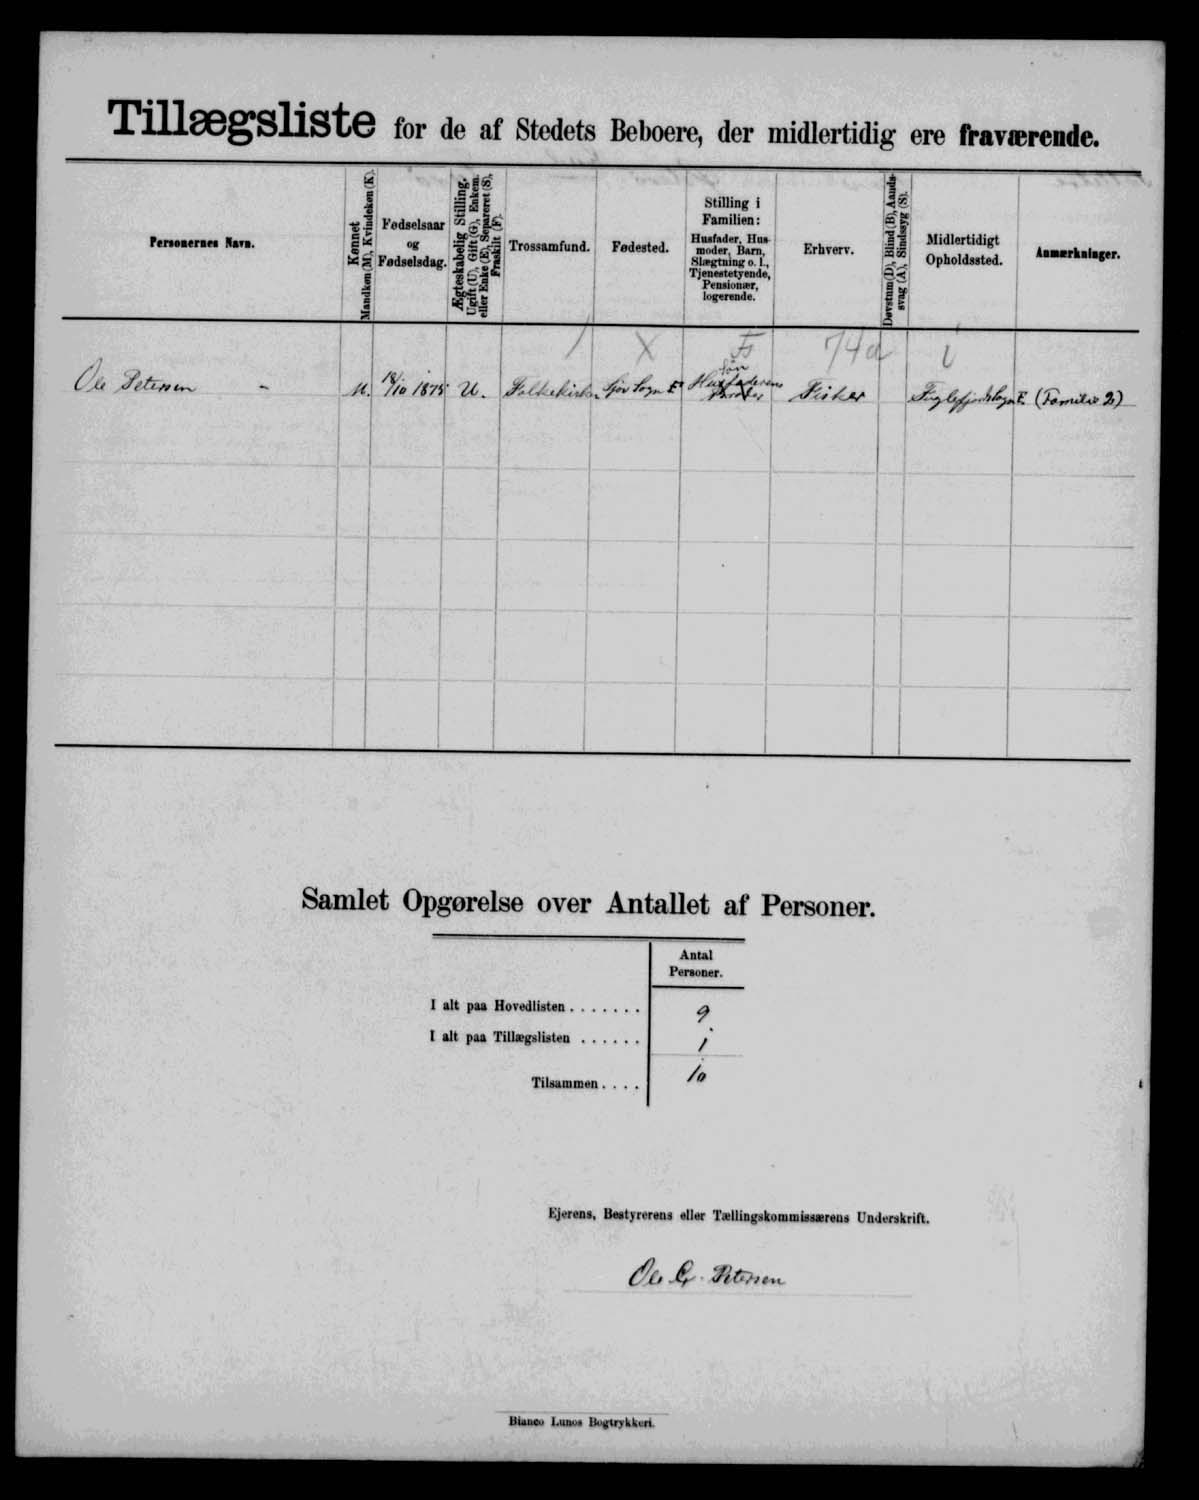 Tillægsliste for de af Stedets Beboere, der midlertidig ere fraværende.
Personernes Navn.
Kønnet
Mandkøn (M), Kvindekøn (K).
Fødselsaar
og
Fødselsdag.
Ægteskabelig Stilling.
Ugift (U), Gift (G), Enkem.
eller Enke (E), Separeret (S),
Fraskilt (F).
Trossamfund.
Fødested.
Stilling i
Familien:
Husfader, Hus-
moder, Barn,
Slægtning o. l.,
Tjenestetyende,
Pensionær,
logerende.
Erhverv.
Døvstum (D), Blind (B), Aands-
svag (A), Sindssyg (S).
Midlertidigt
Opholdssted.
Anmærkninger.
74a
Ole Petersen
M.
18/10 1875
U.
Folkekirken
Sogn
Søn
Husfaderens
Fisker
Fuglefjords Sogn F.
(Familie 2)
Samlet Opgørelse over Antallet af Personer.
Antal
Personer.
I alt paa Hovedlisten . . . . . . . 9
I alt paa Tillægslisten . . . . . . 1
Tilsammen . . . . 10
Ejerens, Bestyrerens eller Tællingskommissærens Underskrift.
Ole Petersen
Bianco Lunos Bogtrykkeri.